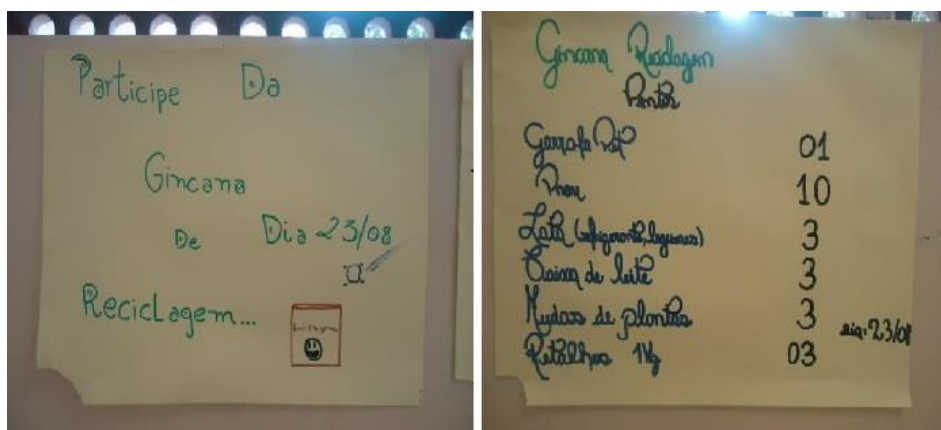 Participe Da
Gincana
De Dia 23/08
Reciclagem...
Gincana Reciclagem
Pontos
Garrafa Pet 01
Pneu 10
Lata (refrigerante, legumes) 3
Caixa de leite 3
Mudas de plantas 3
dia: 23/08
Retalhos 1Kg 03